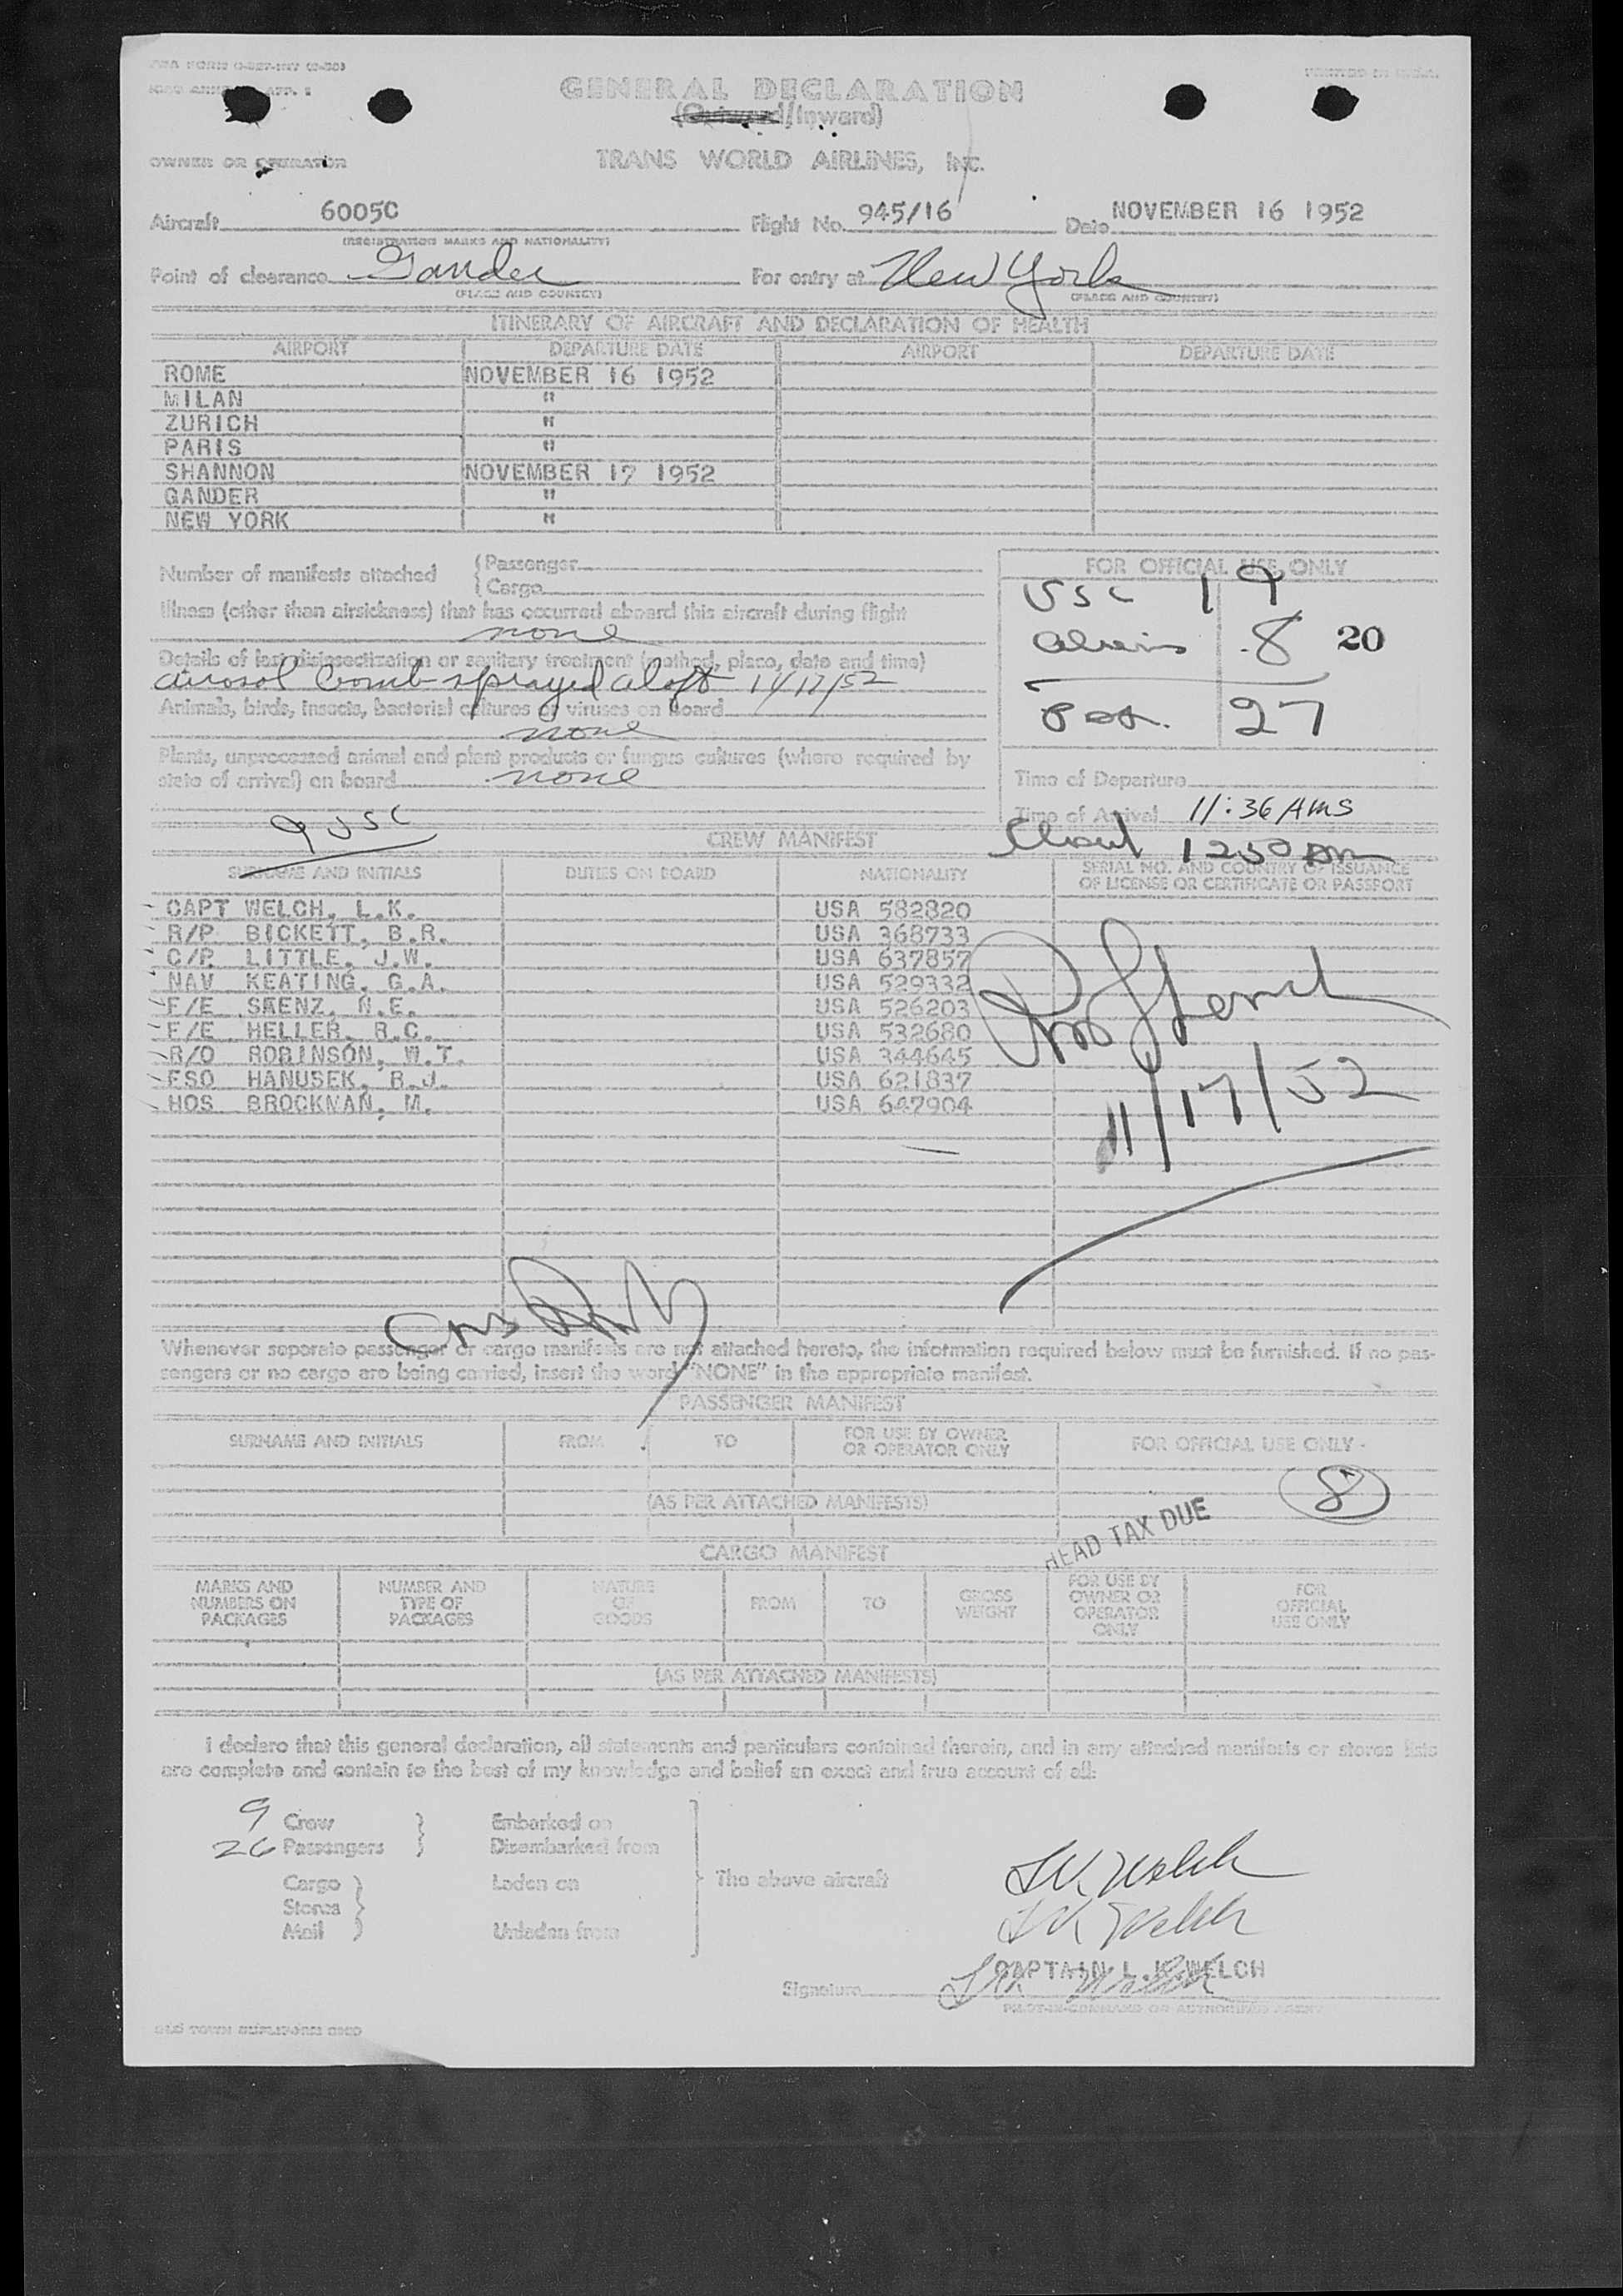 TWA FORM
PRINTED IN U.S.A.
ICAO ANNEX APP. 1
GENERAL DECLARATION
(Outward/Inward)
OWNER OR OPERATOR TRANS WORLD AIRLINES, INC.
Aircraft 6005C Flight No. 945/16 Date NOVEMBER 16 1952
(REGISTRATION MARKS AND NATIONALITY)
Point of clearance Gander For entry at New York
(PLACE AND COUNTRY) (PLACE AND COUNTRY)
ITINERARY OF AIRCRAFT AND DECLARATION OF HEALTH
AIRPORT DEPARTURE DATE AIRPORT DEPARTURE DATE
ROME NOVEMBER 16 1952
MILAN "
ZURICH "
PARIS "
SHANNON NOVEMBER 17 1952
GANDER "
NEW YORK "
Number of manifests attached { Passenger
{ Cargo
Illness (other than airsickness) that has occurred aboard this aircraft during flight
none
Details of last disinsectization or sanitary treatment (method, place, date and time)
airosol bomb sprayed aloft 11/17/52
Animals, birds, insects, bacterial cultures or viruses on board
none
Plants, unprocessed animal and plant products or fungus cultures (where required by
state of arrival) on board none
FOR OFFICIAL USE ONLY
USC 19
aliens 8 20
27
Time of Departure
Time of Arrival 11:36 AMS
1250 pm
9 USC
CREW MANIFEST
SURNAME AND INITIALS DUTIES ON BOARD NATIONALITY SERIAL NO. AND COUNTRY OF ISSUANCE
OF LICENSE OR CERTIFICATE OR PASSPORT
CAPT WELCH, L.K. USA 582820
R/P BICKETT, B.R. USA 368733
C/P LITTLE, J.W. USA 637857
NAV KEATING, G.A. USA 529332
F/E SAENZ, N.E. USA 526203
F/E HELLER, R.C. USA 532680
R/O ROBINSON, W.T. USA 344645
FSO HANUSEK, R.J. USA 621837
HOS BROCKMAN, M. USA 647904
11/17/52
Whenever separate passenger or cargo manifests are not attached hereto, the information required below must be furnished. If no pas-
sengers or no cargo are being carried, insert the word "NONE" in the appropriate manifest.
PASSENGER MANIFEST
SURNAME AND INITIALS FROM TO FOR USE BY OWNER
OR OPERATOR ONLY FOR OFFICIAL USE ONLY
8
(AS PER ATTACHED MANIFESTS)
HEAD TAX DUE
CARGO MANIFEST
MARKS AND
NUMBERS ON
PACKAGES
NUMBER AND
TYPE OF
PACKAGES
NATURE
OF
GOODS
FROM
TO
GROSS
WEIGHT
FOR USE BY
OWNER OR
OPERATOR
ONLY
FOR
OFFICIAL
USE ONLY
(AS PER ATTACHED MANIFESTS)
I declare that this general declaration, all statements and particulars contained therein, and in any attached manifests or stores lists
are complete and contain to the best of my knowledge and belief an exact and true account of all:
9 Crew } Embarked on
26 Passengers } Disembarked from
Cargo } Laden on The above aircraft
Stores }
Mail } Unladen from
L.K. Welch
L.K. Welch
CAPTAIN L.K. WELCH
Signature L.K. Welch
PILOT-IN-COMMAND OR AUTHORIZED AGENT